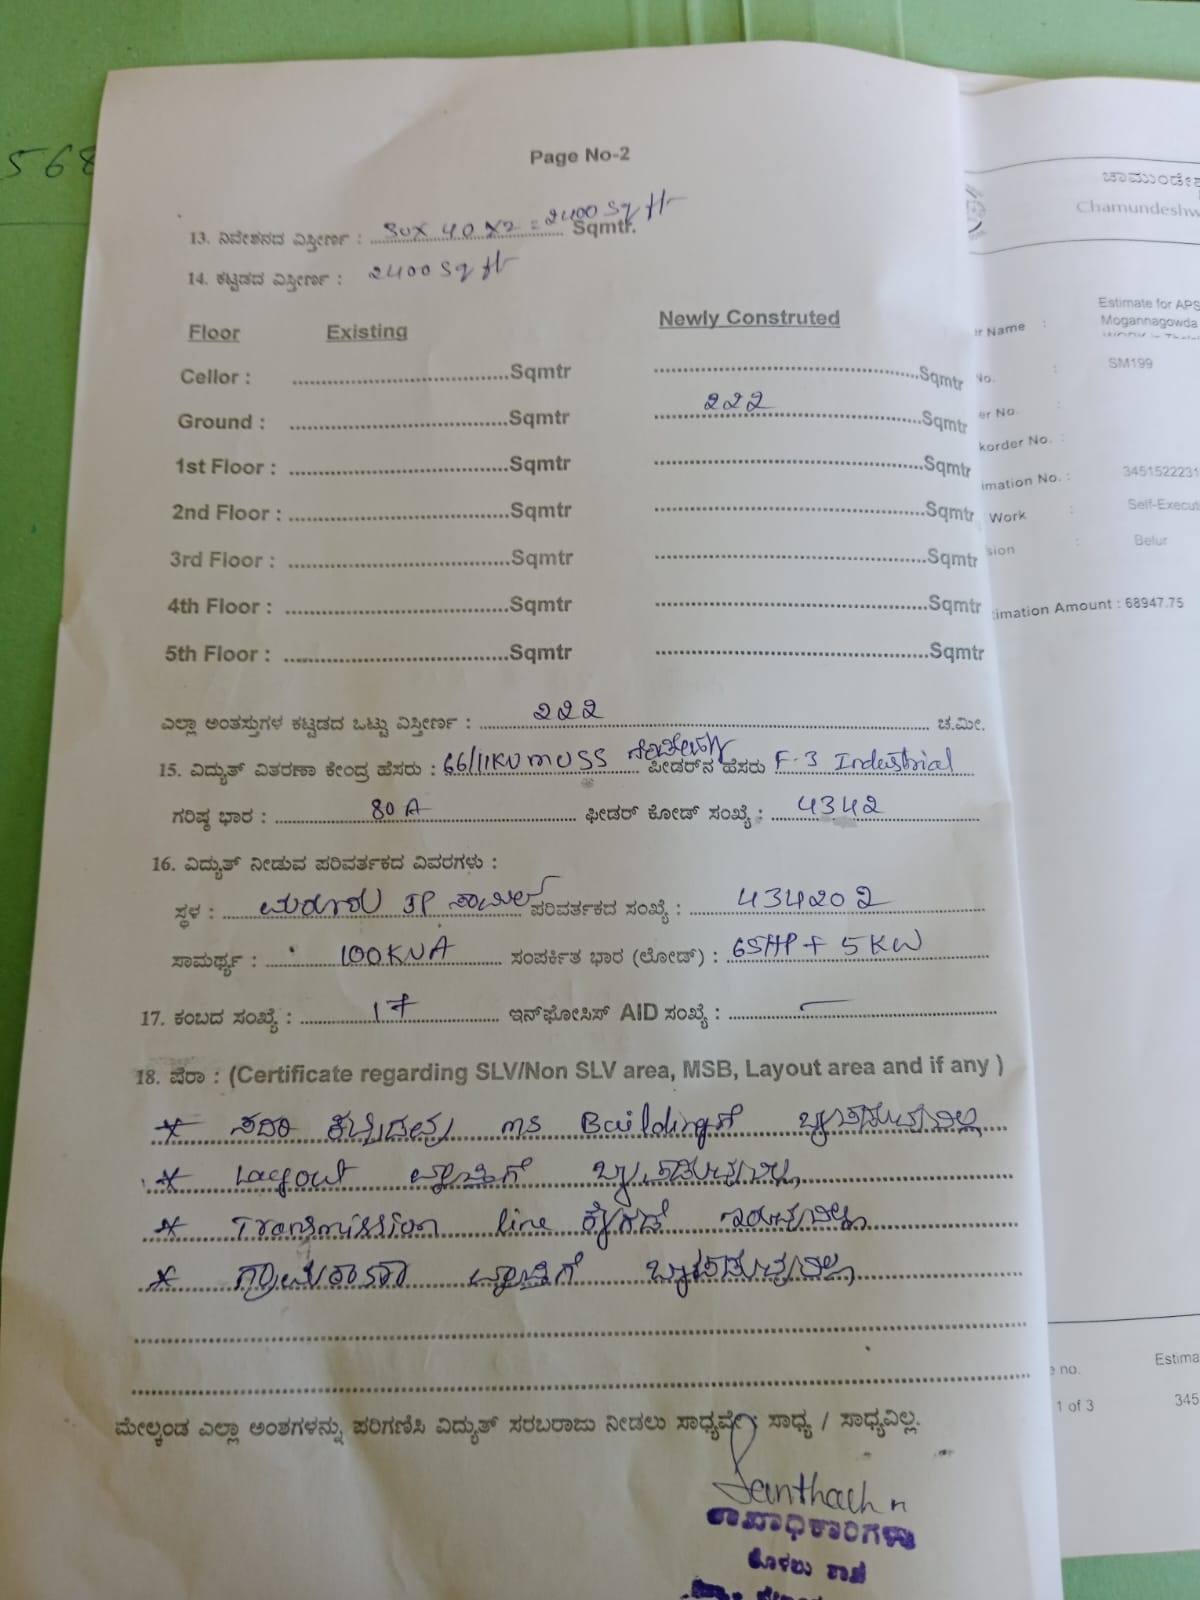 568
Page No-2
13. ನಿವೇಶನದ ವಿಸ್ತೀರ್ಣ : 30x 40 x2 = 2400 Sq ft Sqmtr.
14. ಕಟ್ಟಡದ ವಿಸ್ತೀರ್ಣ : 2400 Sq ft
Floor Existing Newly Construted
Cellor : Sqmtr Sqmtr
Ground : Sqmtr 222 Sqmtr
1st Floor : Sqmtr Sqmtr
2nd Floor : Sqmtr Sqmtr
3rd Floor : Sqmtr Sqmtr
4th Floor : Sqmtr Sqmtr
5th Floor : Sqmtr Sqmtr
ಎಲ್ಲಾ ಅಂತಸ್ತುಗಳ ಕಟ್ಟಡದ ಒಟ್ಟು ವಿಸ್ತೀರ್ಣ : 222 ಚ.ಮೀ.
15. ವಿದ್ಯುತ್ ವಿತರಣಾ ಕೇಂದ್ರ ಹೆಸರು : 66/11KV MUSS ಫೀಡರ್‌ನ ಹೆಸರು F-3 Industrial
ಗರಿಷ್ಠ ಭಾರ : 80 A ಫೀಡರ್ ಕೋಡ್ ಸಂಖ್ಯೆ : 4342
16. ವಿದ್ಯುತ್ ನೀಡುವ ಪರಿವರ್ತಕದ ವಿವರಗಳು :
ಸ್ಥಳ : ಪರಿವರ್ತಕದ ಸಂಖ್ಯೆ : 434202
ಸಾಮರ್ಥ್ಯ : 100KVA ಸಂಪರ್ಕಿತ ಭಾರ (ಲೋಡ್) : 65HP + 5 KW
17. ಕಂಬದ ಸಂಖ್ಯೆ : 17 ಇನ್‌ಫೋಸಿಸ್ AID ಸಂಖ್ಯೆ : —
18. ಷೆರಾ : (Certificate regarding SLV/Non SLV area, MSB, Layout area and if any )
* ಸದರಿ ಕಟ್ಟಡವು MS Buildingಗೆ ಒಳಪಡುವುದಿಲ್ಲ
* Layout ವ್ಯಾಪ್ತಿಗೆ ಒಳಪಡುವುದಿಲ್ಲ
* Transmission line ಕೆಳಗಡೆ ಇರುವುದಿಲ್ಲ
* ಗ್ರಾಮಠಾಣಾ ವ್ಯಾಪ್ತಿಗೆ ಒಳಪಡುವುದಿಲ್ಲ
ಮೇಲ್ಕಂಡ ಎಲ್ಲಾ ಅಂಶಗಳನ್ನು ಪರಿಗಣಿಸಿ ವಿದ್ಯುತ್ ಸರಬರಾಜು ನೀಡಲು ಸಾಧ್ಯವೇ: ಸಾಧ್ಯ / ಸಾಧ್ಯವಿಲ್ಲ.
ಶಾಖಾಧಿಕಾರಿಗಳು
ಶಾಖೆ
ಚಾಮುಂಡೇಶ್ವ
Chamundeshw
Estimate for APS
r Name : Mogannagowda
No. : SM199
er No. :
korder No. :
imation No. : 3451522231
Work : Self-Execut
sion : Belur
timation Amount : 68947.75
e no. Estima
1 of 3 345